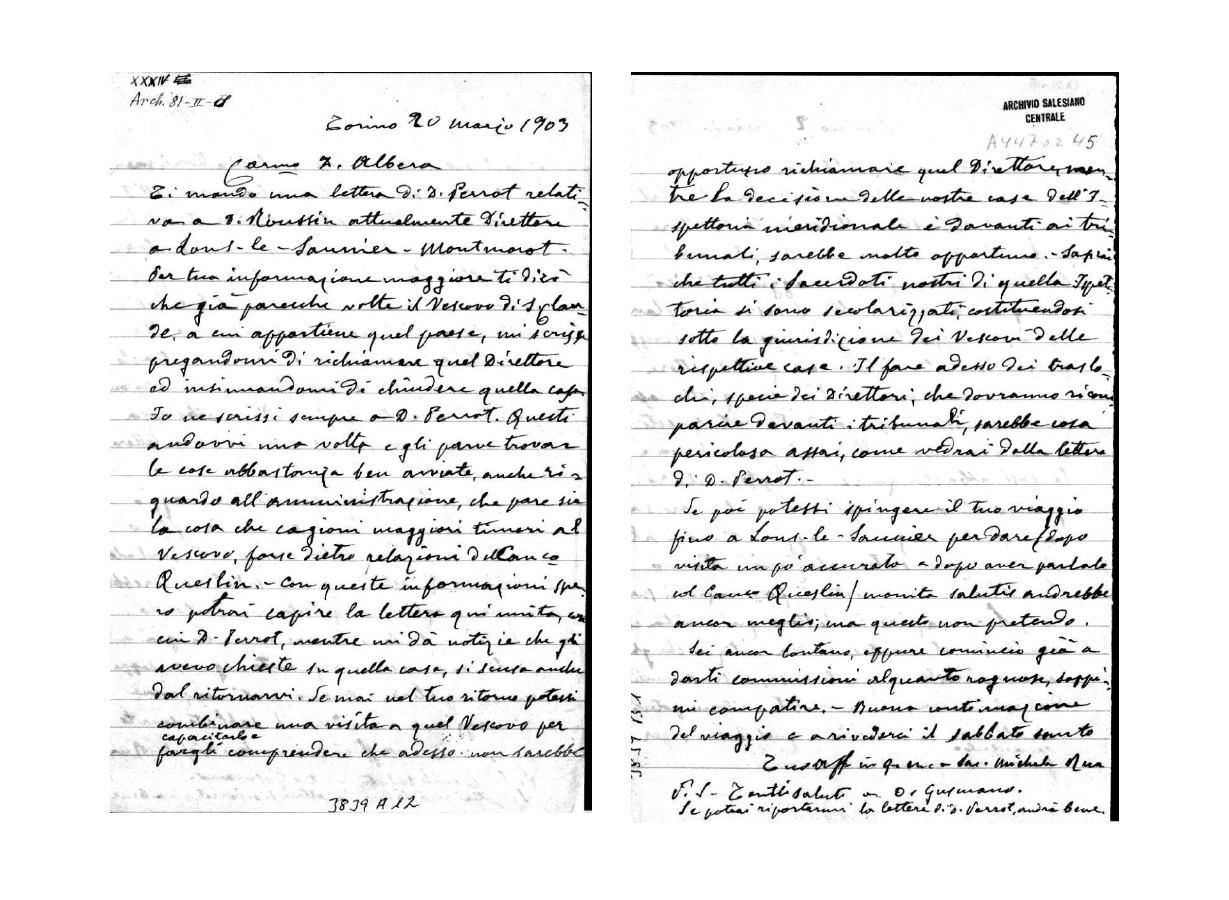 XXXIV
Arch. 81-II-8
Torino 20 Marzo 1903
Carmo D. Albera
Ti mando una lettera di D. Perrot relati-
va a D. Roussin attualmente Direttore
a Lons-le-Saunier-Montmorot.
Per tua informazione maggiore ti dico
che già parecchie volte il Vescovo di S. Clau-
de, a cui appartiene quel paese, mi scrisse
pregandomi di richiamare quel Direttore
ed insinuandomi di chiudere quella casa
Io ne scrissi sempre a D. Perrot. Questi
andovvi una volta e gli parve trovar
le cose abbastanza ben avviate, anche ri-
guardo all'amministrazione, che pare sia
la cosa che cagioni maggiori timori al
Vescovo, forse dietro relazioni del Canco
Queslin. - Con queste informazioni spe-
ro potrai capire la lettera qui unita, con
cui D. Perrot, mentre mi dà notizie che gli
avevo chieste su quella casa, si scusa anche
dal ritornarvi. Se mai nel tuo ritorno potessi
combinare una visita a quel Vescovo per
capacitarlo e
fargli comprendere che adesso non sarebbe
3839 A 12
ARCHIVIO SALESIANO
CENTRALE
A4470245
opportuno richiamare quel Direttore, men-
tre la decisione delle nostre case dell'I-
spettoria meridionale è davanti ai tri-
bunali, sarebbe molto opportuno. - Saprai
che tutti i Sacerdoti nostri di quella Ispet-
toria si sono secolarizzati, costituendosi
sotto la giurisdizione dei Vescovi delle
rispettive case. Il fare adesso dei traslo-
chi, specie dei Direttori, che dovranno ricom-
parire davanti i tribunali, sarebbe cosa
pericolosa assai, come vedrai dalla lettera
di D. Perrot. -
Se poi potessi spingere il tuo viaggio
fino a Lons-le-Saunier per dare (dopo
visita un po' accurata e dopo aver parlato
col Canco Queslin) monita salutis andrebbe
ancor meglio; ma questo non pretendo.
Sei ancor lontano, eppure comincio già a
darti commissioni alquanto rognose, sappi-
mi compatire. - Buona continuazione
del viaggio e a rivederci il sabbato santo
Tuo aff in G. e M. Sac. Michele Rua
P.S. - Tanti saluti a D. Gusmano.
Se potrai riportarmi la lettera di D. Perrot, andrà bene.